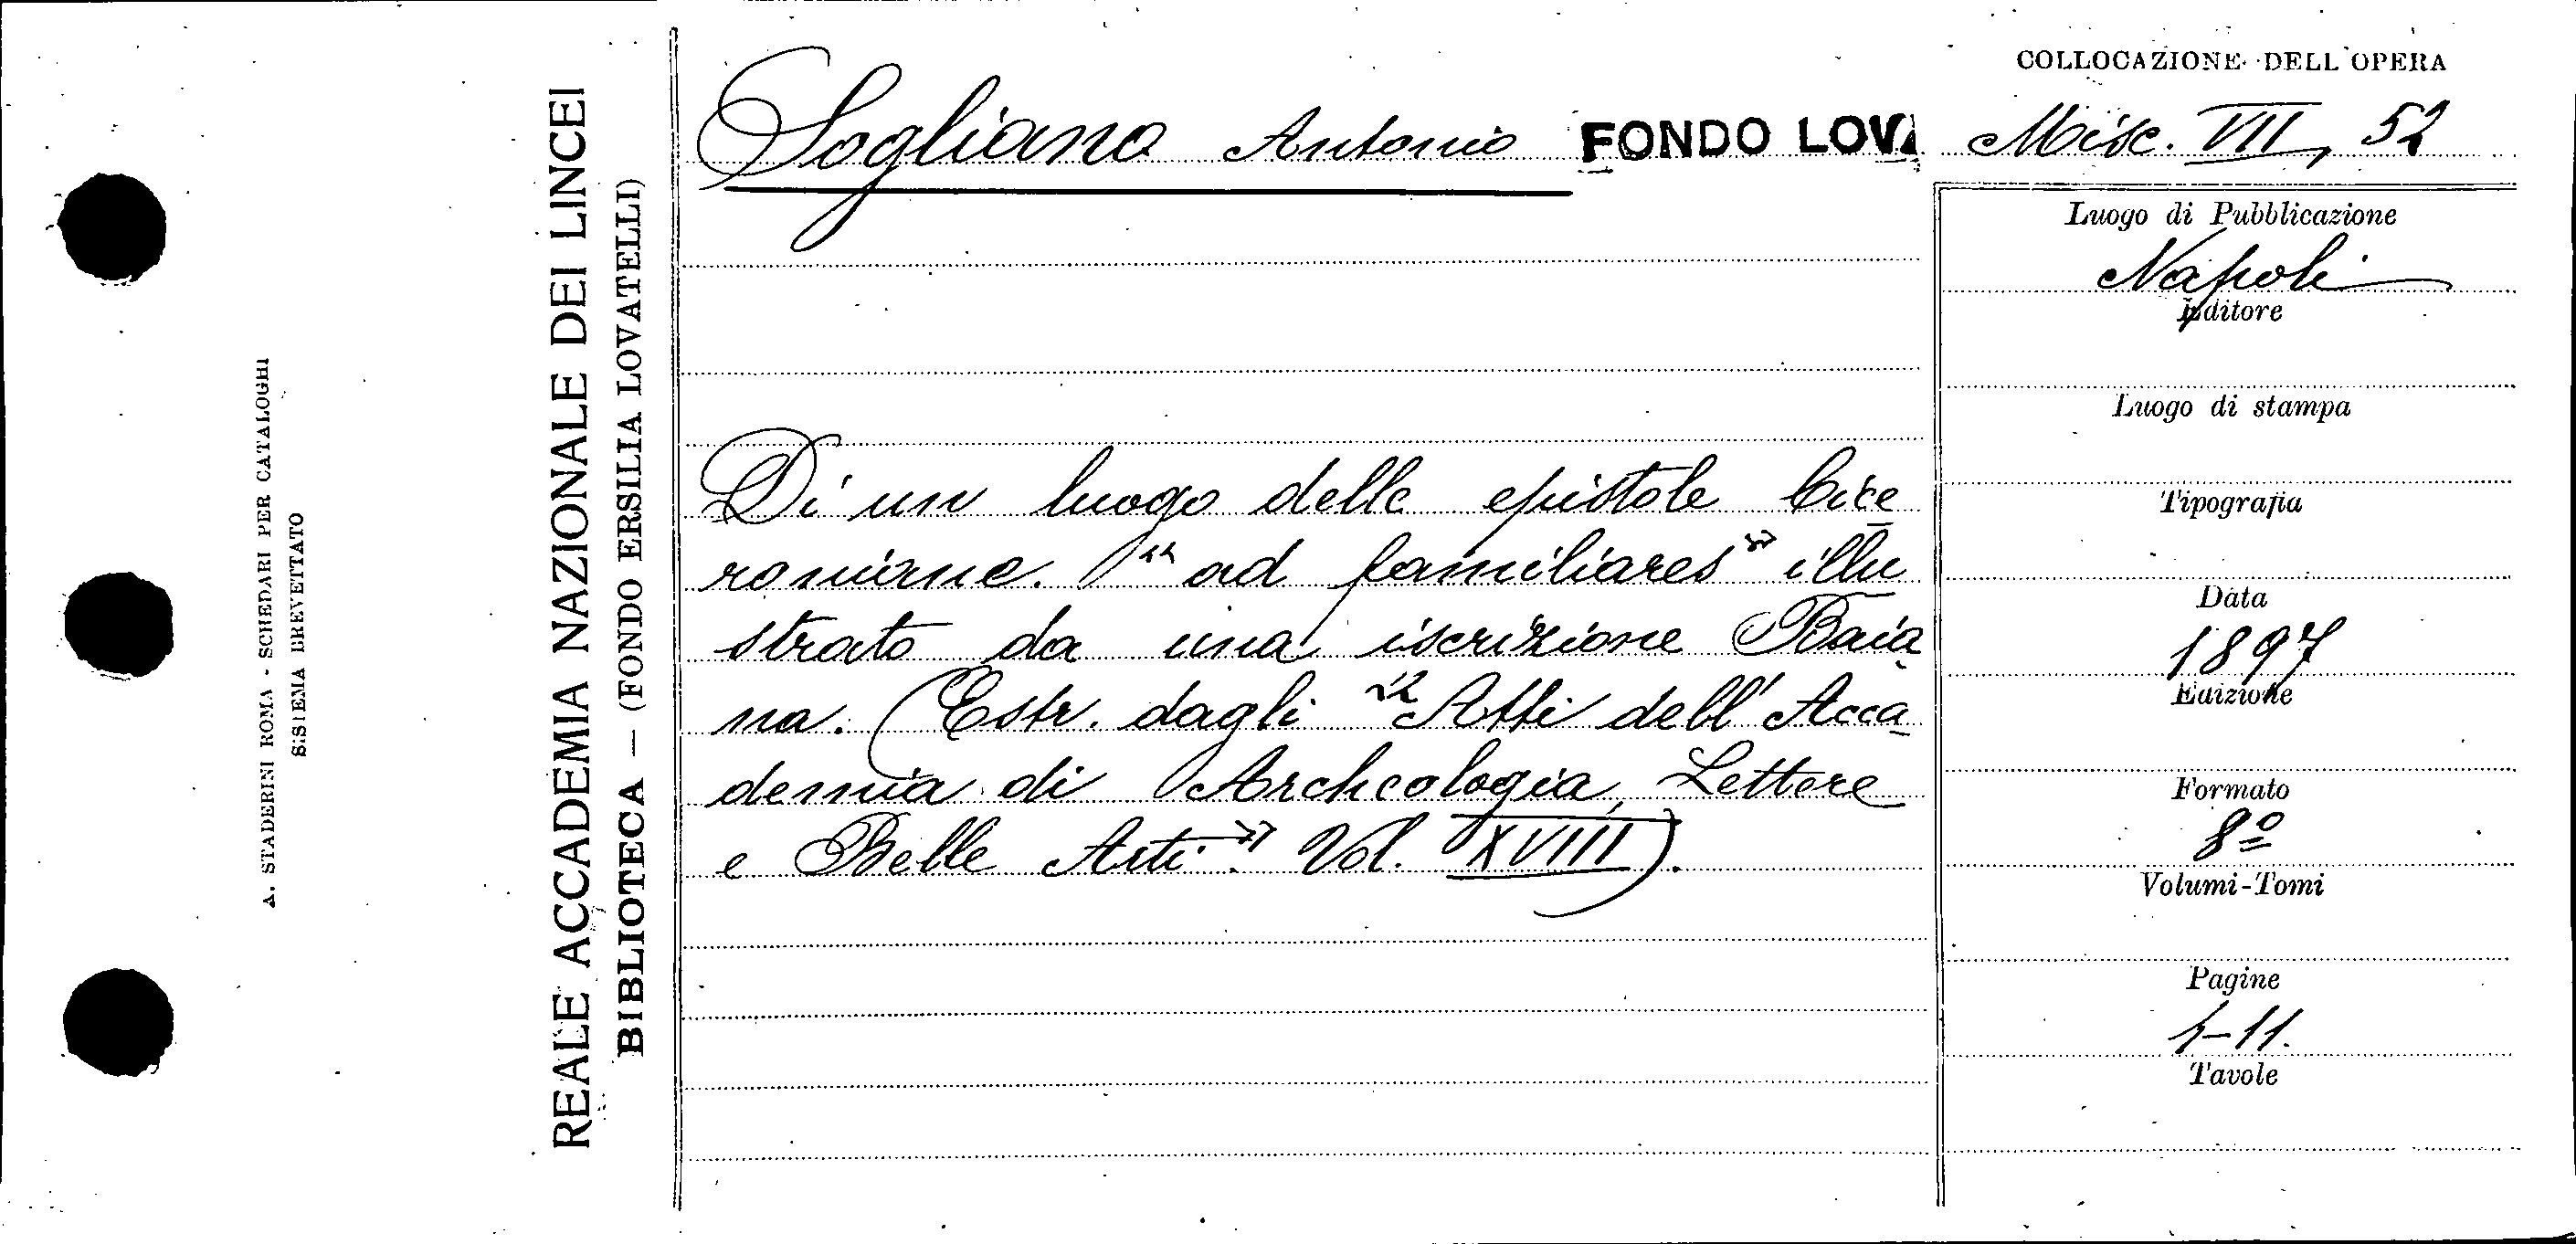 A. STADERINI ROMA - SCHEDARI PER CATALOGHI
SISTEMA BREVETTATO
REALE ACCADEMIA NAZIONALE DEI LINCEI
BIBLIOTECA — (FONDO ERSILIA LOVATELLI)
Sogliano Antonio FONDO LOVA
Di un luogo delle epistole Cice
roniane "ad familiares" illu
strato da una iscrizione Baia
na. (Estr. dagli "Atti dell'Acca
demia di Archeologia, Lettere
e Belle Arti" Vol. XVIII).
COLLOCAZIONE DELL'OPERA
Misc. VII, 52
Luogo di Pubblicazione
Napoli
Editore
Luogo di stampa
Tipografia
Data
1897
Edizione
Formato
8º
Volumi-Tomi
Pagine
1-11.
Tavole